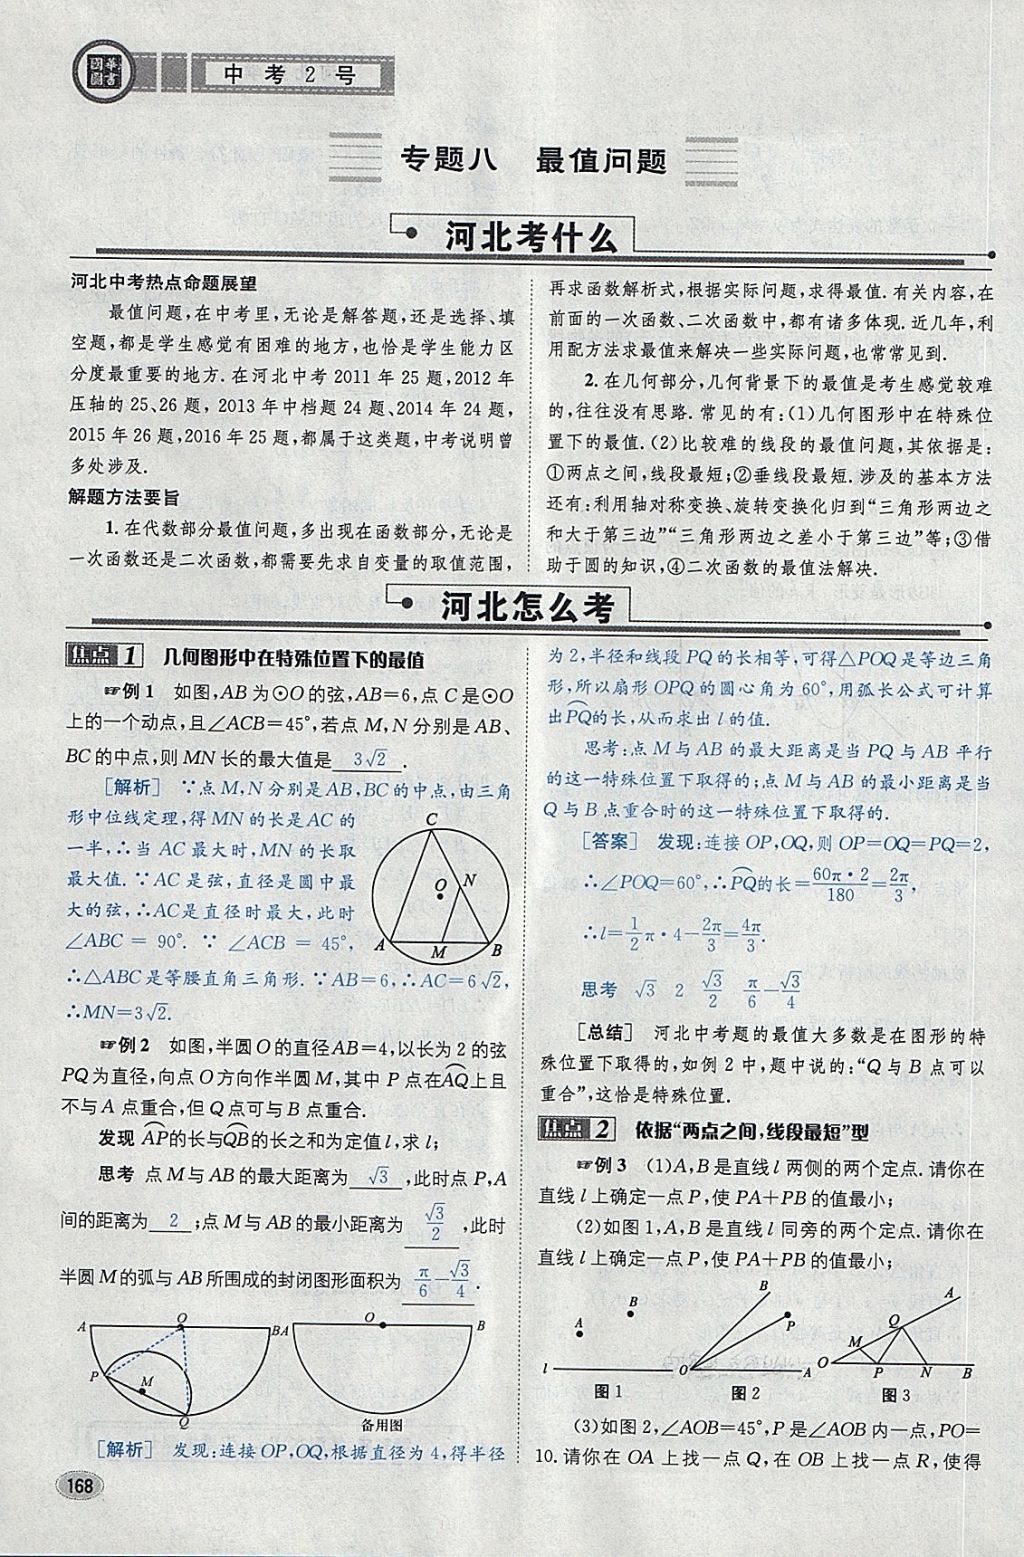 國華圖書
中考2号
专题八 最值问题
河北考什么
河北中考热点命题展望
最值问题,在中考里,无论是解答题,还是选择、填
空题,都是学生感觉有困难的地方,也恰是学生能力区
分度最重要的地方.在河北中考 2011 年 25 题,2012 年
压轴的 25、26 题, 2013 年中档题 24 题、2014 年 24 题,
2015 年 26 题,2016 年 25 题,都属于这类题,中考说明曾
多处涉及.
解题方法要旨
1.在代数部分最值问题,多出现在函数部分,无论是
一次函数还是二次函数,都需要先求自变量的取值范围,
再求函数解析式,根据实际问题,求得最值.有关内容,在
前面的一次函数、二次函数中,都有诸多体现.近几年,利
用配方法求最值来解决一些实际问题,也常常见到.
2.在几何部分,几何背景下的最值是考生感觉较难
的,往往没有思路.常见的有:(1)几何图形中在特殊位
置下的最值.(2)比较难的线段的最值问题,其依据是:
①两点之间,线段最短;②垂线段最短.涉及的基本方法
还有:利用轴对称变换、旋转变换化归到“三角形两边之
和大于第三边”“三角形两边之差小于第三边”等;③借
助于圆的知识,④二次函数的最值法解决.
河北怎么考
焦点 1 几何图形中在特殊位置下的最值
☞例 1 如图,AB 为⊙O 的弦,AB=6,点 C 是⊙O
上的一个动点,且∠ACB=45°,若点 M,N 分别是 AB、
BC 的中点,则 MN 长的最大值是 3√2 .
[解析] ∵点 M,N 分别是 AB,BC 的中点,由三角
形中位线定理,得 MN 的长是 AC 的
一半,∴当 AC 最大时,MN 的长取
最大值.∵AC 是弦,直径是圆中最
大的弦,∴AC是直径时最大,此时
∠ABC = 90°. ∵ ∠ACB = 45°,
∴△ABC 是等腰直角三角形.∵AB=6,∴AC=6√2,
∴MN=3√2.
C
O
N
A
M
B
☞例 2 如图,半圆 O 的直径AB=4,以长为 2 的弦
PQ为直径,向点 O 方向作半圆 M,其中 P 点在A͡Q上且
不与 A 点重合,但 Q 点可与 B 点重合.
发现 A͡P的长与Q͡B的长之和为定值 l,求 l;
思考 点 M 与 AB 的最大距离为 √3 ,此时点 P,A
间的距离为 2 ;点 M 与 AB 的最小距离为 √3/2 ,此时
半圆 M 的弧与 AB 所围成的封闭图形面积为 π/6−√3/4 .
A O B A O B
P M
Q
备用图
[解析] 发现:连接 OP,OQ,根据直径为 4,得半径
为 2,半径和线段 PQ 的长相等,可得△POQ 是等边三角
形,所以扇形 OPQ 的圆心角为 60°,用弧长公式可计算
出P͡Q的长,从而求出 l 的值.
思考:点 M 与 AB 的最大距离是当 PQ 与 AB 平行
的这一特殊位置下取得的;点 M 与 AB 的最小距离是当
Q 与 B 点重合时的这一特殊位置下取得的.
[答案] 发现:连接 OP,OQ,则 OP=OQ=PQ=2,
∴∠POQ=60°,∴P͡Q的长=60π·2/180=2π/3,
∴l=1/2π·4−2π/3=4π/3.
思考 √3 2 √3/2 π/6−√3/4
[总结] 河北中考题的最值大多数是在图形的特
殊位置下取得的,如例 2 中,题中说的:“Q 与 B 点可以
重合”,这恰是特殊位置.
焦点 2 依据“两点之间,线段最短”型
☞例 3 (1)A,B 是直线 l 两侧的两个定点.请你在
直线 l 上确定一点 P,使 PA+PB 的值最小;
(2)如图 1,A,B 是直线 l 同旁的两个定点.请你在
直线 l 上确定一点 P,使 PA+PB 的值最小;
A B l
图 1
B P O A
图 2
A Q M O P N B
图 3
(3)如图 2,∠AOB=45°,P 是∠AOB 内一点,PO=
10.请你在 OA 上找一点 Q,在 OB 上找一点 R,使得
168